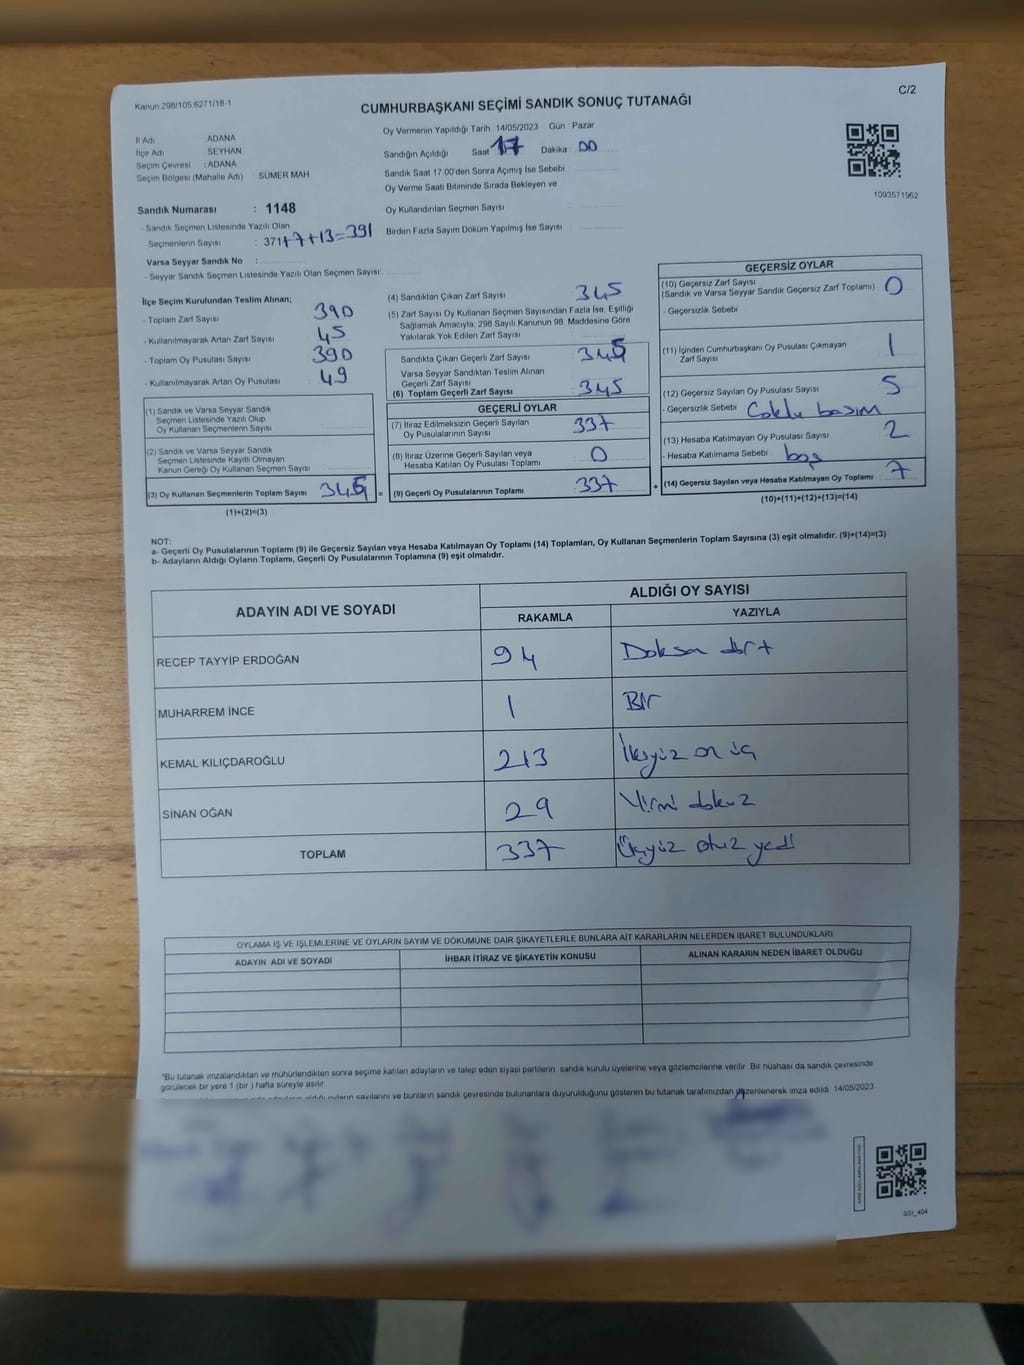 Kanun:298/105,6271/18-1
CUMHURBAŞKANI SEÇİMİ SANDIK SONUÇ TUTANAĞI
C/2
İl Adı ADANA
İlçe Adı SEYHAN
Seçim Çevresi : ADANA
Seçim Bölgesi (Mahalle Adı) : SÜMER MAH
Oy Vermenin Yapıldığı Tarih :14/05/2023 Gün : Pazar
Sandığın Açıldığı Saat 17 Dakika : 00
Sandık Saat 17:00'den Sonra Açılmış İse Sebebi
Oy Verme Saati Bitiminde Sırada Bekleyen ve
Oy Kullandırılan Seçmen Sayısı :
Birden Fazla Sayım Döküm Yapılmış İse Sayısı :
1093571962
Sandık Numarası : 1148
- Sandık Seçmen Listesinde Yazılı Olan
Seçmenlerin Sayısı : 371+7+13=391
Varsa Seyyar Sandık No :
- Seyyar Sandık Seçmen Listesinde Yazılı Olan Seçmen Sayısı
İlçe Seçim Kurulundan Teslim Alınan;
- Toplam Zarf Sayısı 390
- Kullanılmayarak Artan Zarf Sayısı 45
- Toplam Oy Pusulası Sayısı 390
- Kullanılmayarak Artan Oy Pusulası 49
(1) Sandık ve Varsa Seyyar Sandık
Seçmen Listesinde Yazılı Olup
Oy Kullanan Seçmenlerin Sayısı
(2) Sandık ve Varsa Seyyar Sandık
Seçmen Listesinde Kayıtlı Olmayan
Kanun Gereği Oy Kullanan Seçmen Sayısı :
(3) Oy Kullanan Seçmenlerin Toplam Sayısı =
(1)+(2)=(3)
(4) Sandıktan Çıkan Zarf Sayısı 345
(5) Zarf Sayısı Oy Kullanan Seçmen Sayısından Fazla İse, Eşitliği
Sağlamak Amacıyla, 298 Sayılı Kanunun 98. Maddesine Göre
Yakılarak Yok Edilen Zarf Sayısı :
Sandıkta Çıkan Geçerli Zarf Sayısı 345
Varsa Seyyar Sandıktan Teslim Alınan
Geçerli Zarf Sayısı
(6) Toplam Geçerli Zarf Sayısı 345
GEÇERLİ OYLAR
(7) İtiraz Edilmeksizin Geçerli Sayılan
Oy Pusulalarının Sayısı 337
(8) İtiraz Üzerine Geçerli Sayılan veya
Hesaba Katılan Oy Pusulası Toplamı 0
(9) Geçerli Oy Pusulalarının Toplamı 337 +
GEÇERSİZ OYLAR
(10) Geçersiz Zarf Sayısı
(Sandık ve Varsa Seyyar Sandık Geçersiz Zarf Toplamı) 0
- Geçersizlik Sebebi :
(11) İçinden Cumhurbaşkanı Oy Pusulası Çıkmayan
Zarf Sayısı 1
(12) Geçersiz Sayılan Oy Pusulası Sayısı 5
- Geçersizlik Sebebi Çoklu basım
(13) Hesaba Katılmayan Oy Pusulası Sayısı 2
- Hesaba Katılmama Sebebi boş
(14) Geçersiz Sayılan veya Hesaba Katılmayan Oy Toplamı 7
(10)+(11)+(12)+(13)=(14)
NOT:
a- Geçerli Oy Pusulalarının Toplamı (9) ile Geçersiz Sayılan veya Hesaba Katılmayan Oy Toplamı (14) Toplamları, Oy Kullanan Seçmenlerin Toplam Sayısına (3) eşit olmalıdır. (9)+(14)=(3)
b- Adayların Aldığı Oyların Toplamı, Geçerli Oy Pusulalarının Toplamına (9) eşit olmalıdır.
ADAYIN ADI VE SOYADI ALDIĞI OY SAYISI
RAKAMLA YAZIYLA
RECEP TAYYİP ERDOĞAN 94 Doksan dört
MUHARREM İNCE 1 Bir
KEMAL KILIÇDAROĞLU 213 İkiyüz on üç
SİNAN OĞAN 29 Yirmi dokuz
TOPLAM 337 Üçyüz otuz yedi
OYLAMA İŞ VE İŞLEMLERİNE VE OYLARIN SAYIM VE DÖKÜMÜNE DAİR ŞİKAYETLERLE BUNLARA AİT KARARLARIN NELERDEN İBARET BULUNDUKLARI
ADAYIN ADI VE SOYADI İHBAR İTİRAZ VE ŞİKAYETİN KONUSU ALINAN KARARIN NEDEN İBARET OLDUĞU
"Bu tutanak imzalandıktan ve mühürlendikten sonra seçime katılan adayların ve talep eden siyasi partilerin sandık kurulu üyelerine veya gözlemcilerine verilir. Bir nüshası da sandık çevresinde
görülecek bir yere 1 (bir ) hafta süreyle asılır.
aldığı oyların sayılarını ve bunların sandık çevresinde bulunanlara duyurulduğunu gösteren bu tutanak tarafımızdan düzenlenerek imza edildi. 14/05/2023
SSI_404